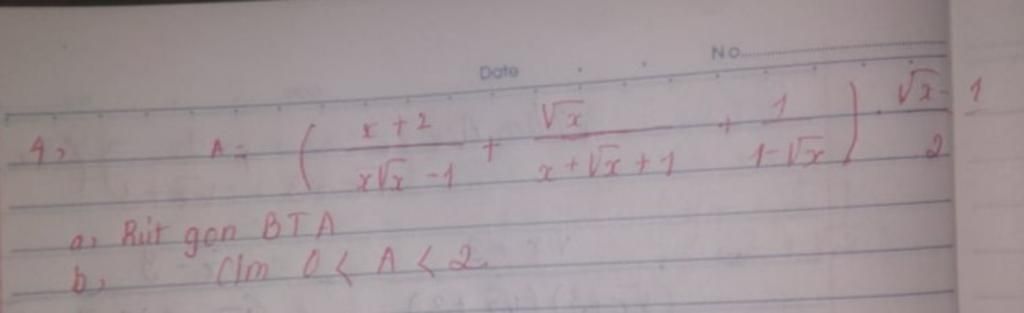 Date No
4, A = ( \frac{x+2}{x\sqrt{x}-1} + \frac{\sqrt{x}}{x+\sqrt{x}+1} + \frac{1}{1-\sqrt{x}} ) . \frac{\sqrt{x}-1}{2}
a, Rút gọn BTA
b, C/m 0 < A < 2